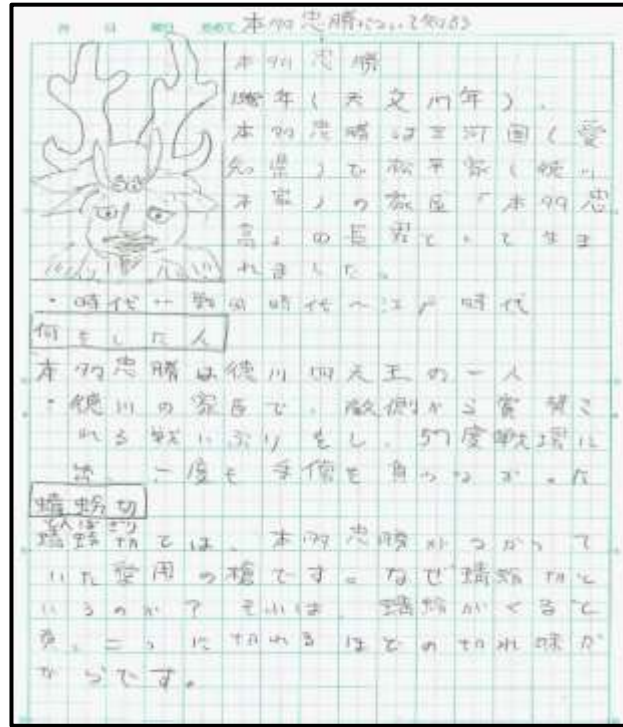 本多忠勝について知ろう
本多忠勝
年(天文17年)、
本多忠勝は三河国(愛
知県)で松平家(徳川
本家)の家臣「本多忠
高」の長男として生ま
れました。
・時代…戦国時代〜江戸時代
何をした人
本多忠勝は徳川四天王の一人
・徳川の家臣で、敵側から賞賛さ
れる戦いぶりをし、57度戦場に
出、一度も手傷を負わなかった
蜻蛉切
とんぼぎり
蜻蛉切とは、本多忠勝がつかって
いた愛用の槍です。なぜ蜻蛉切と
いうのか? それは、蜻蛉がくると
真っ二つに切れるほどの切れ味だ
からです。